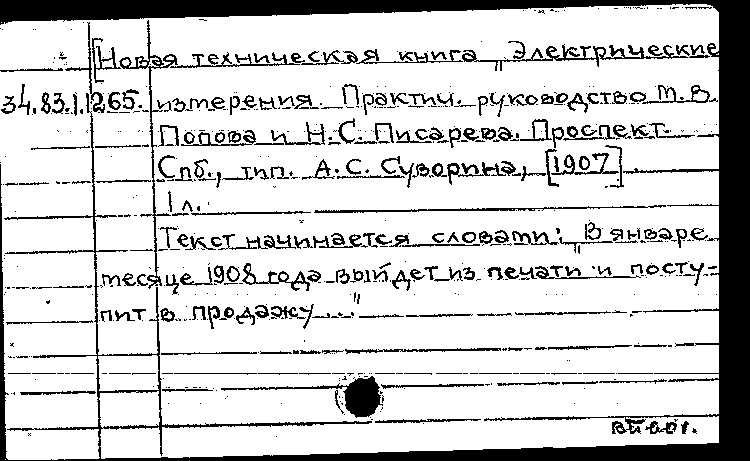 [Новая техническая книга „Электрические
34.83.1.1265. измерения. Практич. руководство М.В.
Попова и Н.С. Писарева. Проспект.
Спб., тип. А.С. Суворина, [1907].
1 л.
Текст начинается словами: „В январе
месяце 1908 года выйдет из печати и посту-
пит в продажу..."